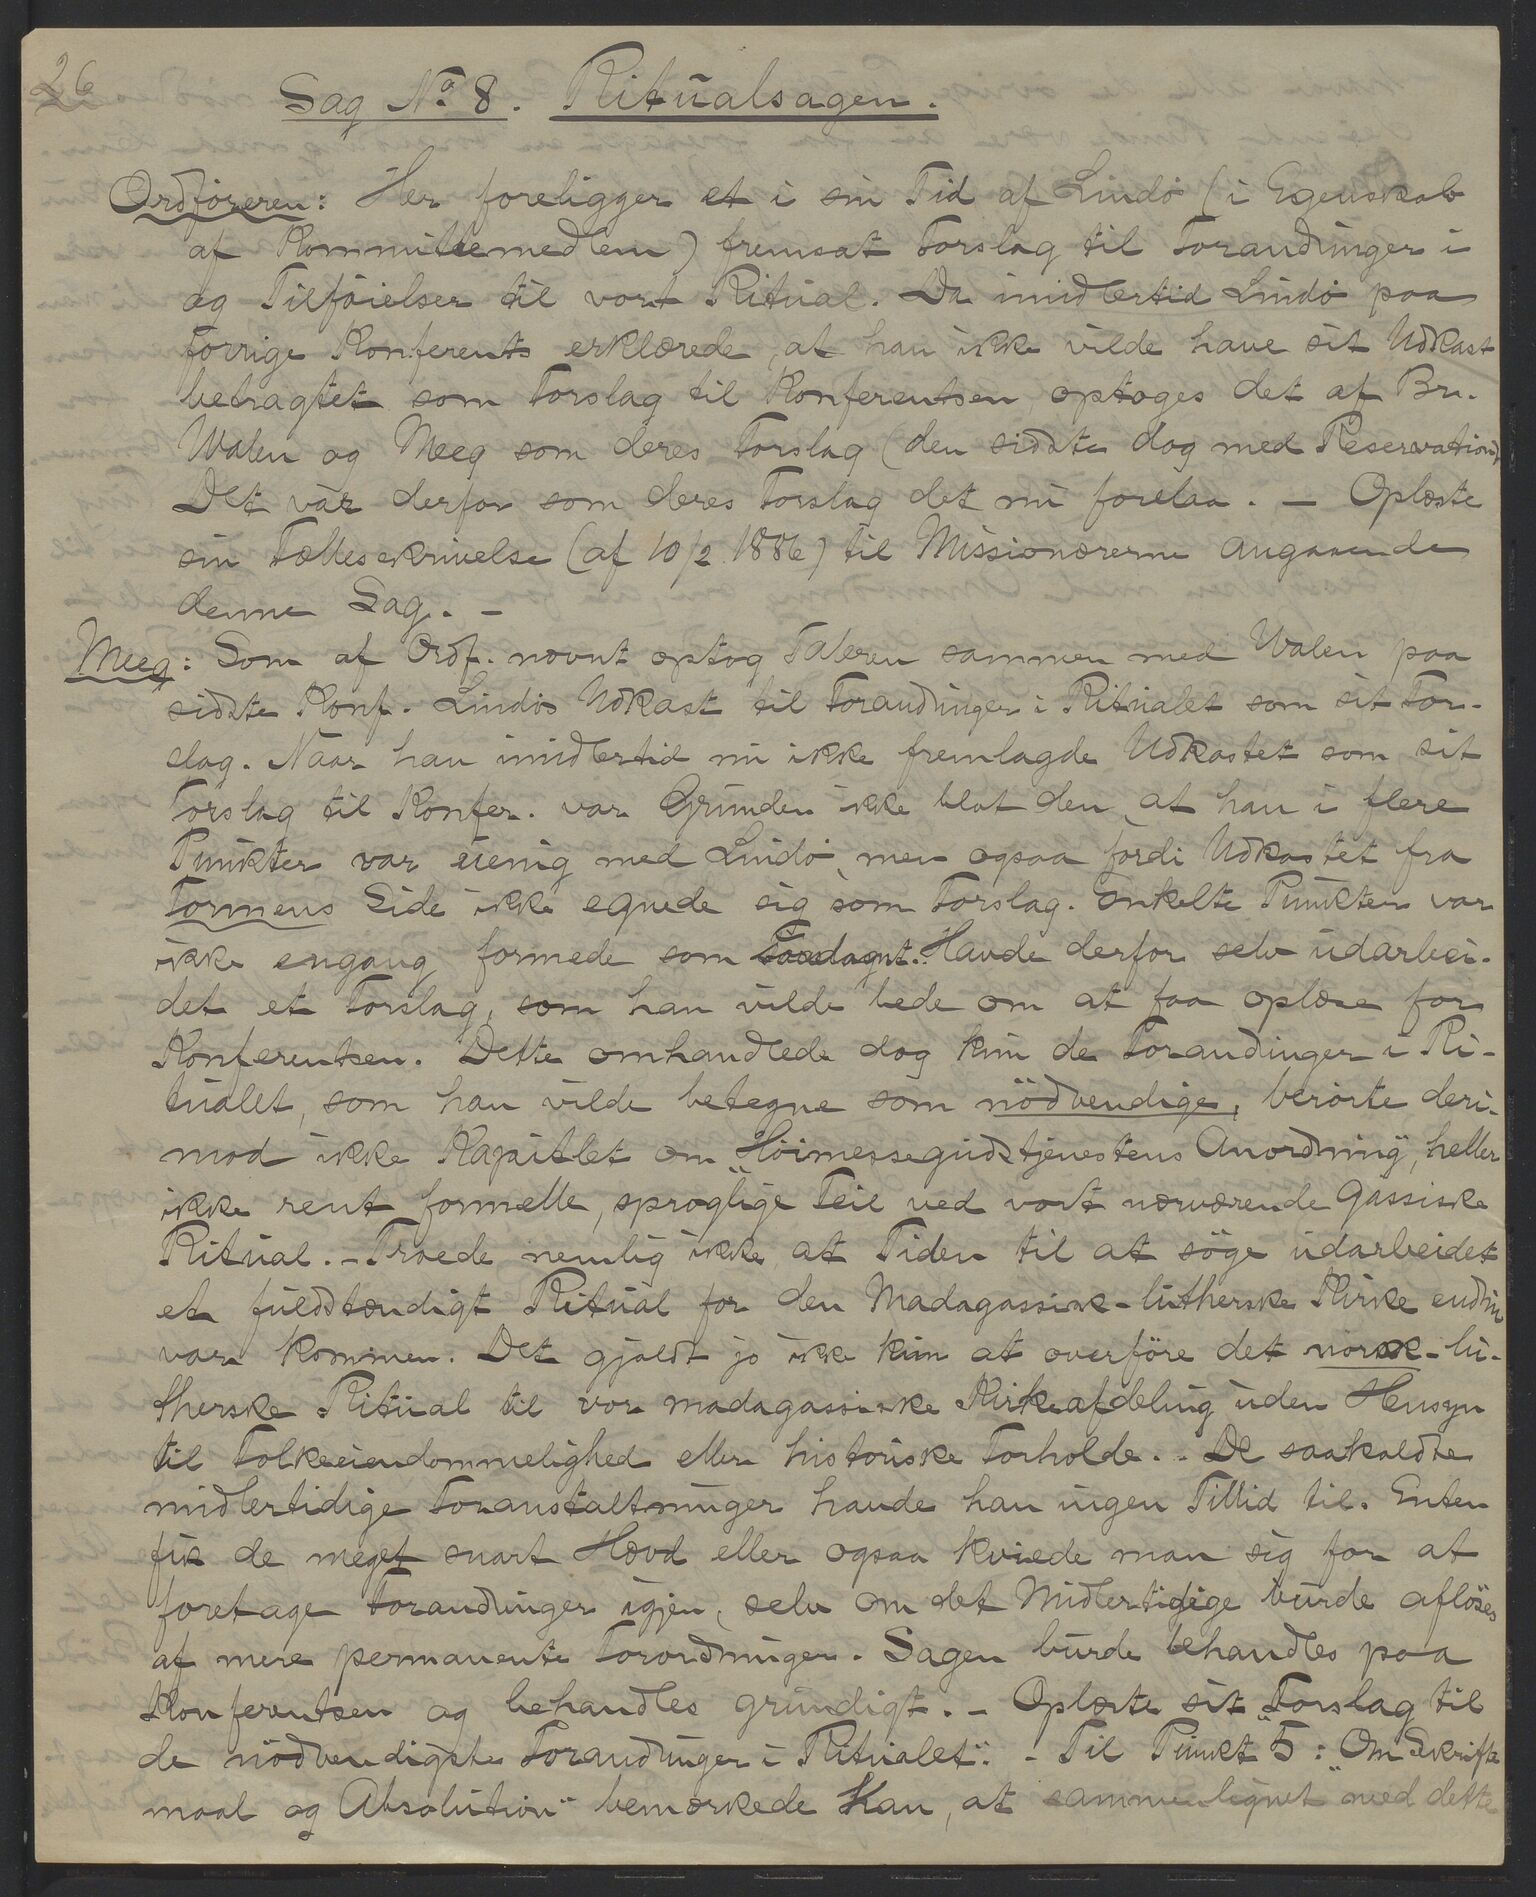 26
Sag No 8. Ritualsagen.
Ordföreren: Her foreligger et i sin Tid af Lindö (i Egenskab
af Kommitteemedlem) fremsat Forslag til Forandringer i
og Tilföielser til vort Ritual. Da imidlertid Lindö paa
forrige Konferents erklærede, at han ikke vilde have sit Udkast
betragtet som Forslag til Konferentsen, optoges det af Br.
Walen og Meeg som deres Forslag (den sidste dog med Reservation)
Det var derfor som deres Forslag det nu forelaa. – Oplæste
sin Fællesskrivelse (af 10/2 1886) til Missionærerne angaaende
denne Sag. –
Meeg: Som af Ordf. nævnt optog Taleren sammen med Walen paa
sidste Konf. Lindös Udkast til Forandringer i Ritualet som sit For-
slag. Naar han imidlertid nu ikke fremlagde Udkastet som sit
Forslag til Konfer. var Grunden ikke blot den, at han i flere
Punkter var uenig med Lindö, men ogsaa fordi Udkastet fra
Formens Side ikke egnede sig som Forslag. Enkelte Punkter var
ikke engang formede som Havde derfor selv udarbei-
det et Forslag, som han vilde bede om at faa oplæse for
Konferentsen. Dette omhandlede dog kun de Forandringer i Ri-
tualet, som han vilde betegne som nödvendige, berörte deri-
mod ikke Kapitlet om „Höimessegudstjenestens Anordning“, heller
ikke rent formelle, sproglige Feil ved vort nærværende gassiske
Ritual. – Troede nemlig ikke at Tiden til at söge udarbeidet
et fuldstændigt Ritual for den Madagassisk-lutherske Kirke endnu
var kommen. Det gjaldt jo ikke kun at overföre det norsk-lu-
therske Ritual til vor madagassiske Kirkeafdeling uden Hensyn
til Folkeeiendommelighed eller historiske Forholde. . De saakaldte
midlertidige Foranstaltninger havde han ingen Tillid til. Enten
fik de meget snart Hævd eller ogsaa kviede man sig for at
foretage Forandringer igjen, selv om det Midlertidige burde aflöses
af mere permanente Forordninger. Sagen burde behandles paa
Konferentsen og behandles grundigt. – Oplæste sit „Forslag til
de nödvendigste Forandringer i Ritualet“. – Til Punkt 5: „Om Skrifte
maal og Absolution“ bemærkede Han, at sammenlignet med dette